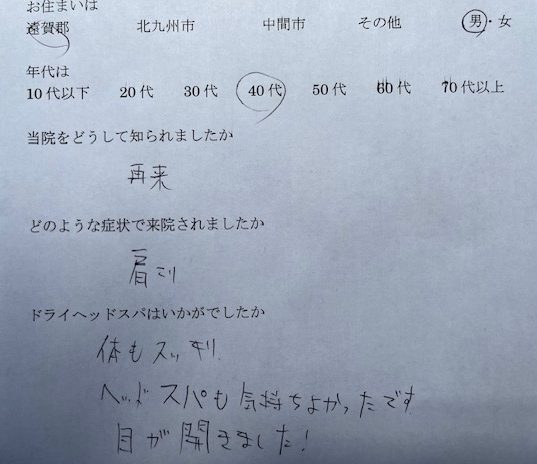 お住まいは
遠賀郡 北九州市 中間市 その他 男・女
年代は
10代以下 20代 30代 40代 50代 60代 70代以上
当院をどうして知られましたか
再来
どのような症状で来院されましたか
肩こり
ドライヘッドスパはいかがでしたか
体もスッキリ
ヘッドスパも気持ちよかったです
目が開きました!